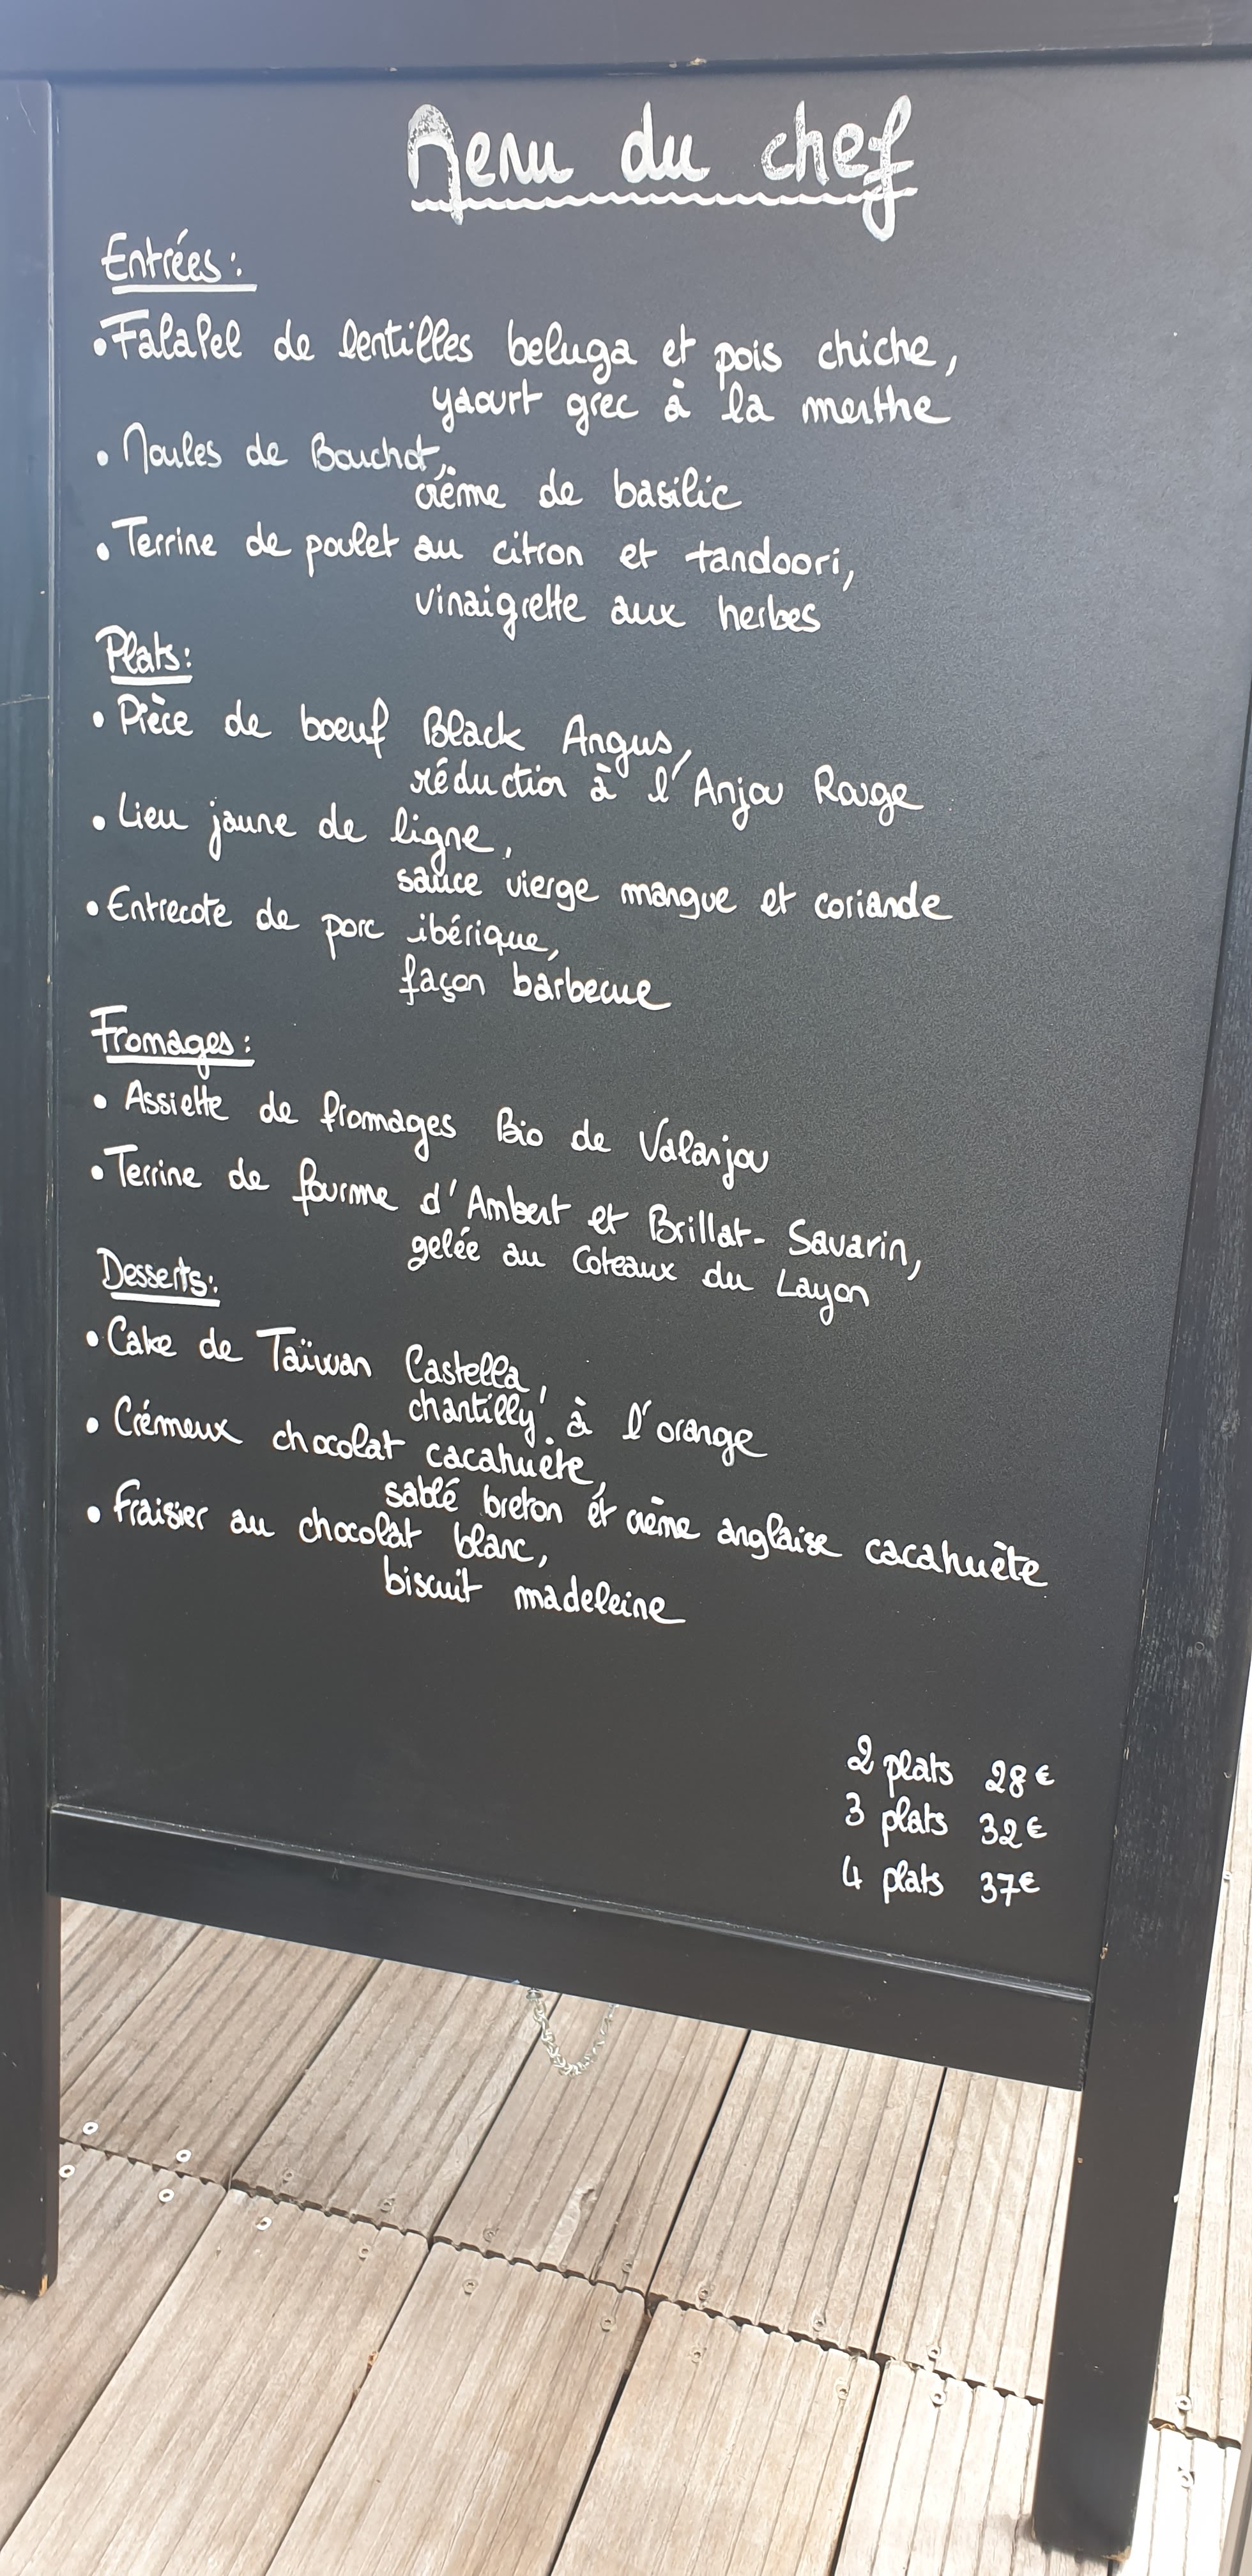 Menu du chef
Entrées :
• Falafel de lentilles beluga et pois chiche,
yaourt grec à la menthe
• Moules de Bouchot,
crème de basilic
• Terrine de poulet au citron et tandoori,
vinaigrette aux herbes
Plats :
• Pièce de boeuf Black Angus,
réduction à l'Anjou Rouge
• Lieu jaune de ligne,
sauce vierge mangue et coriande
• Entrecote de porc ibérique,
façon barbecue
Fromages :
• Assiette de fromages Bio de Valanjou
• Terrine de fourme d'Ambert et Brillat-Savarin,
gelée au Coteaux du Layon
Desserts :
• Cake de Taïwan Castella,
chantilly à l'orange
• Crémeux chocolat cacahuète,
sablé breton et crème anglaise cacahuète
• Fraisier au chocolat blanc,
biscuit madeleine
2 plats 28€
3 plats 32€
4 plats 37€